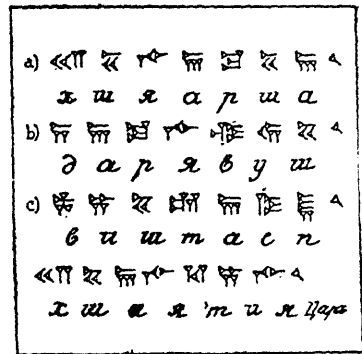 a) 𐎧 𐏁 𐎹 𐎠 𐎼 𐏁 𐎠 𐏐
х ш я а р ш а
b) 𐎭 𐎠 𐎼 𐎹 𐎺 𐎢 𐏁 𐏐
д а р я в у ш
c) 𐎻 𐎡 𐏁 𐎫 𐎠 𐎿 𐎱 𐏐
в и ш т а с п
𐎧 𐏁 𐎠 𐎹 𐎰 𐎡 𐎹 𐏐
х ш а я 'т и я Царь